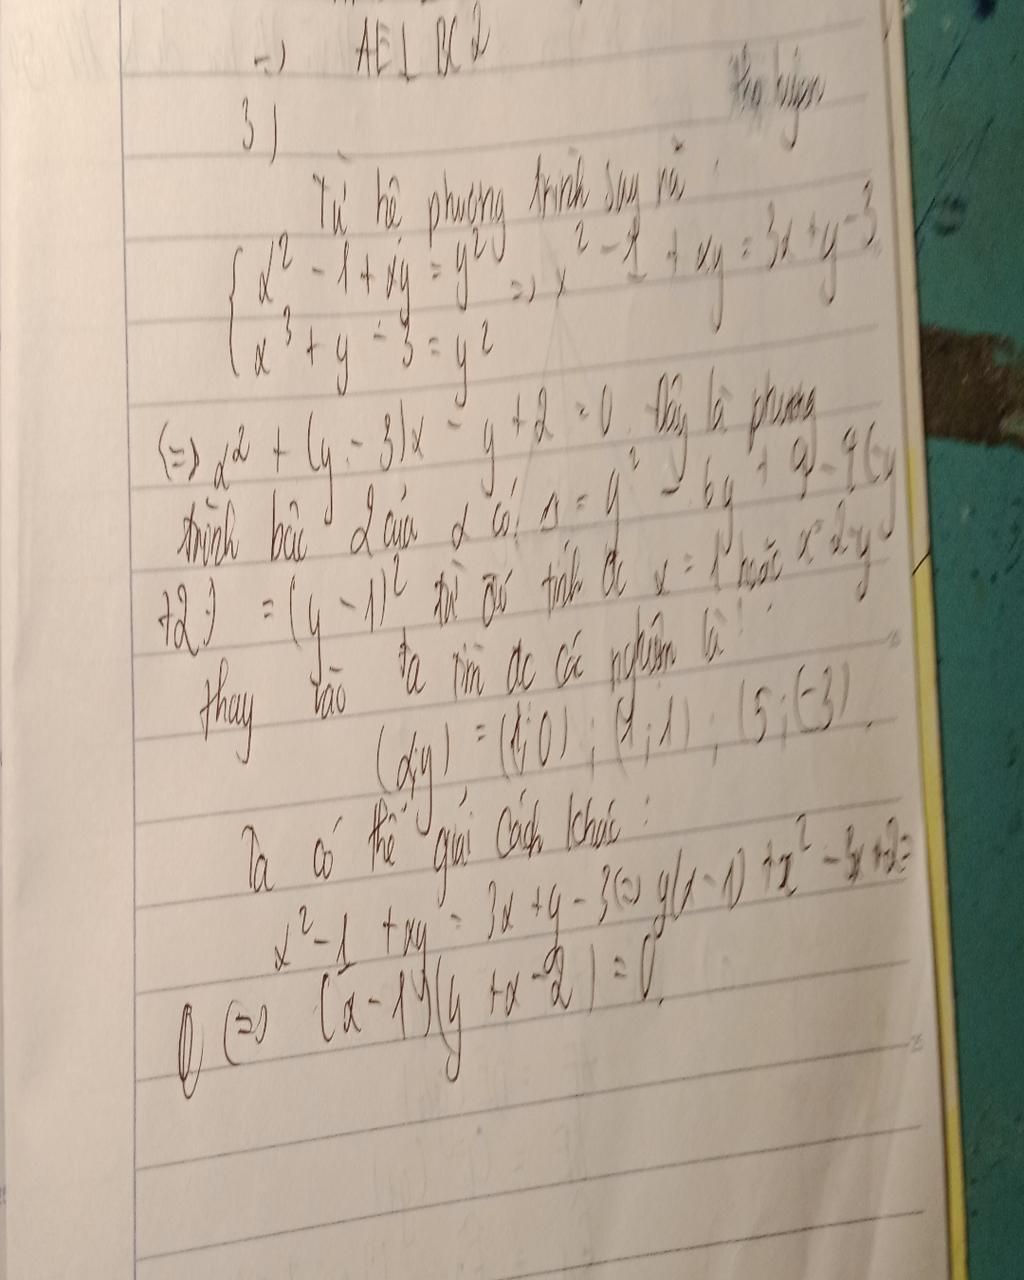 =) AE⊥ BC 2
3)
Từ hệ phương trình suy ra :
{ x² - 1 + xy = y² => x² - 1 + xy = 3x + y - 3
x³ + y - 3 = y²
(=) x² + (y - 3)x - y + 2 = 0. Đây là phương
trình bâc 2 của x có: Δ = y² - 6y + 9 - 4(-y
+2) = (y - 1)², từ đó tính đc x = 1 hoặc x = 2-y
thay vào ta tìm đc các nghiệm là :
(x;y) = (1;0) ; (1;1) ; (5;(-3).
Ta có thể giải cách khác :
x² - 1 + xy = 3x + y - 3 (=) y(x-1) + x² - 3x + 2 =
0 (=) (x - 1)(y + x - 2) = 0.